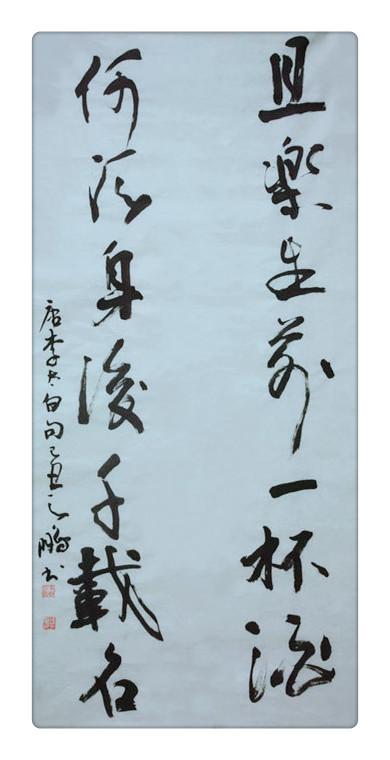 且樂生前一杯酒
何須身後千載名
唐李太白句己丑之鵬書